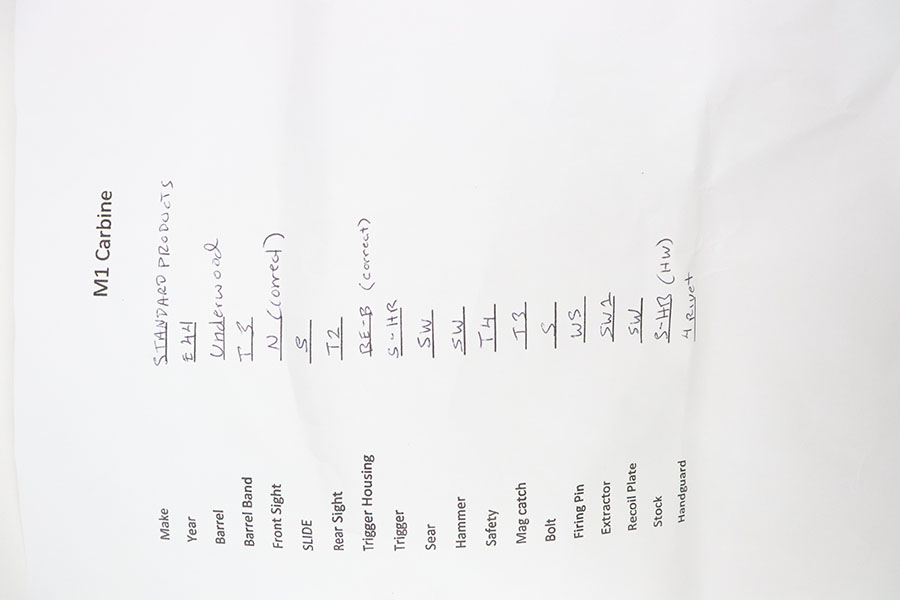 M1 Carbine
Make STANDARD PRODUCTS
Year E 44
Barrel Underwood
Barrel Band T 3
Front Sight N (correct)
SLIDE S
Rear Sight T2
Trigger Housing BE-B (correct)
Trigger S-HR
Sear SW
Hammer SW
Safety T4
Mag catch T3
Bolt S
Firing Pin WS
Extractor SW1
Recoil Plate SW
Stock S-HB (HW)
Handguard 4 Rivet